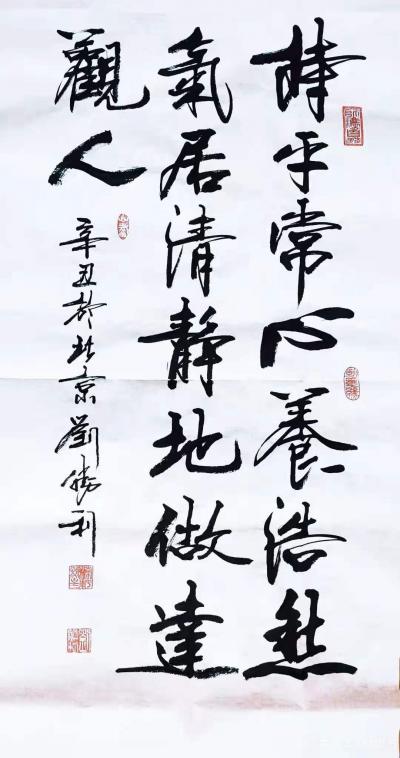 持平常心養浩然
氣居清靜地做達
觀人
辛丑於北京劉勝利